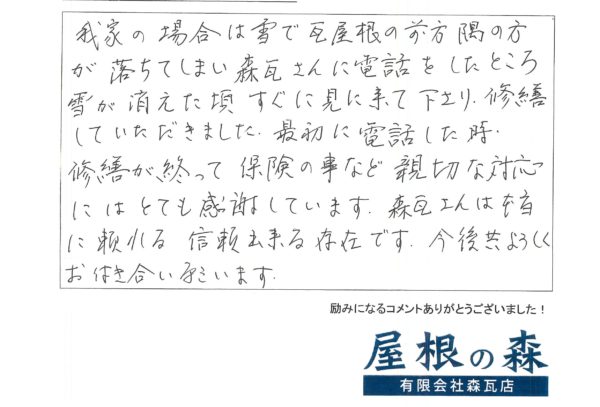 我家の場合は雪で瓦屋根の前方隅の方
が落ちてしまい森瓦さんに電話をしたところ
雪が消えた頃すぐに見に来て下さり、修繕
していただきました。最初に電話した時、
修繕が終って保険の事など親切な対応
にはとても感謝しています。森瓦さんは本当
に頼れる信頼出来る存在です。今後共よろしく
お付き合い願います。
励みになるコメントありがとうございました！
屋根の森
有限会社森瓦店